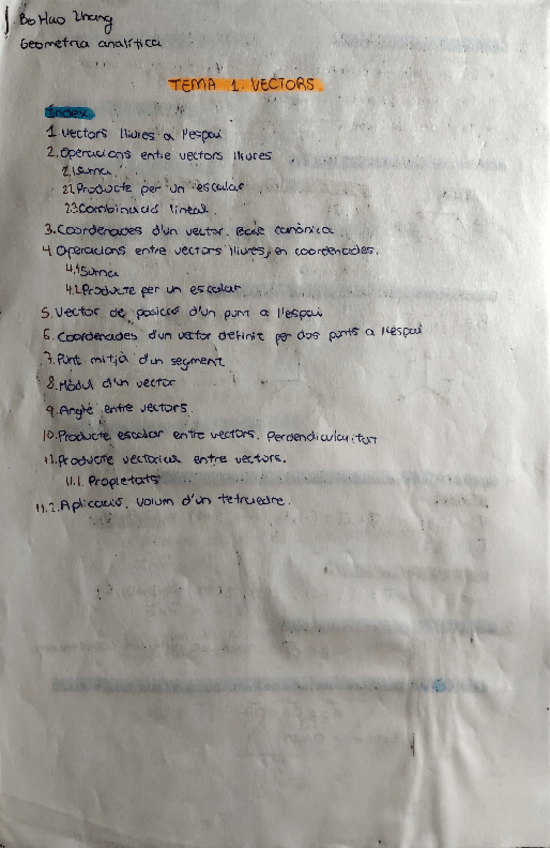 Bo Hao Zhang
Geometria analítica
TEMA 1. VECTORS
Índex
1. Vectors lliures a l'espai
2. Operacions entre vectors lliures
2.1 Suma
2.2 Producte per un escalar
2.3 Combinació lineal
3. Coordenades d'un vector. Base canònica
4 Operacions entre vectors lliures, en coordenades.
4.1 Suma
4.2 Producte per un escalar
5. Vector de posició d'un punt a l'espai
6. Coordenades d'un vector definit per dos punts a l'espai
7. Punt mitjà d'un segment
8. Mòdul d'un vector
9. Angle entre vectors.
10. Producte escalar entre vectors. Perpendicularitat
11. Producte vectorial entre vectors.
11.1. Propietats
11.2. Aplicació, volum d'un tetraedre.